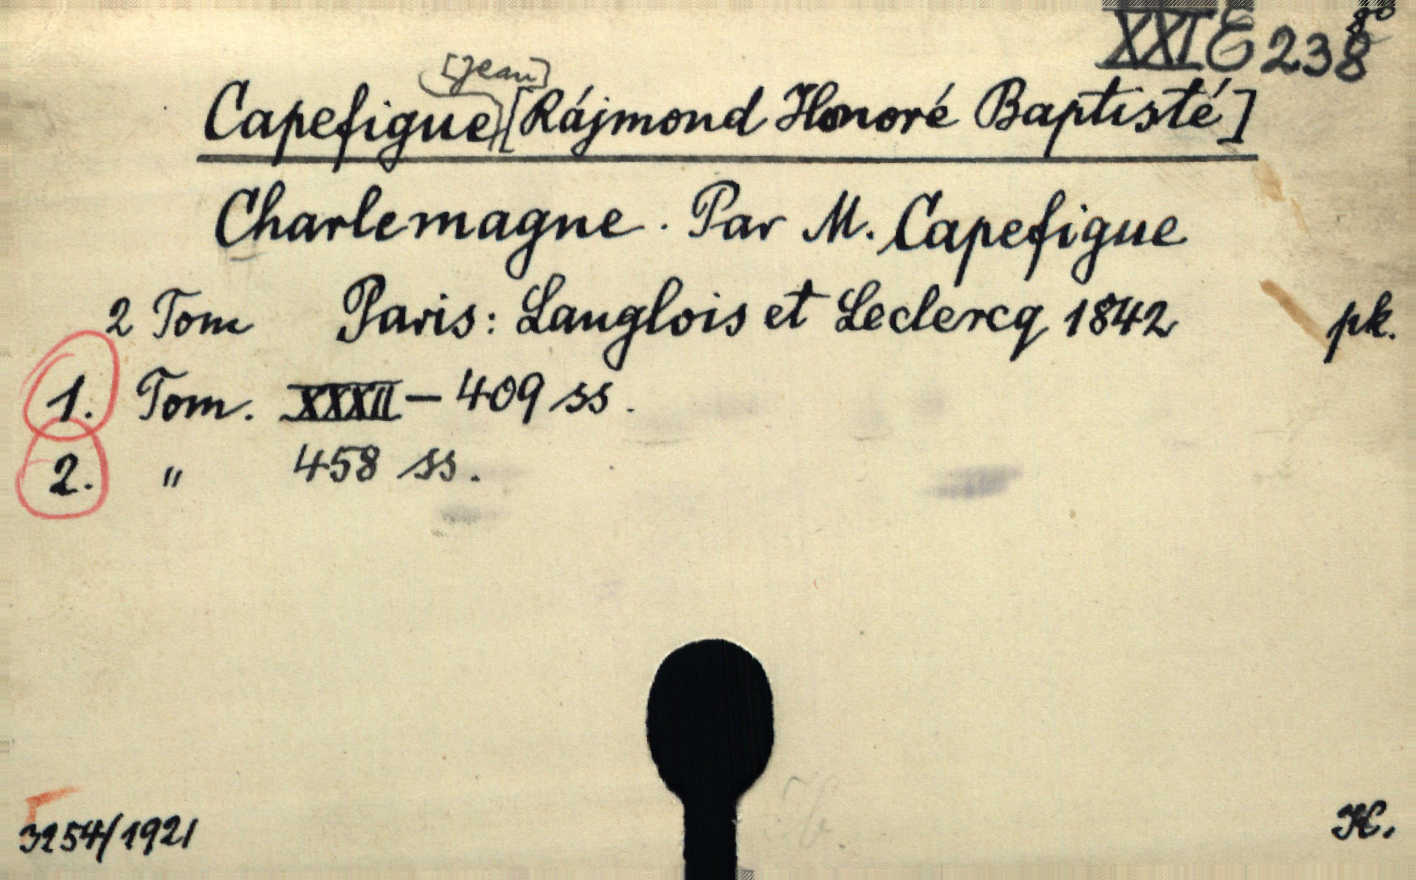 XXI E 238 8°
[Jean]
Capefigue [Rájmond Honoré Baptisté]
Charlemagne. Par M. Capefigue
2 Tom Paris: Langlois et Leclercq 1842 pk.
1. Tom. XXXII – 409 ss.
2. " 458 ss.
3254/1921 K.